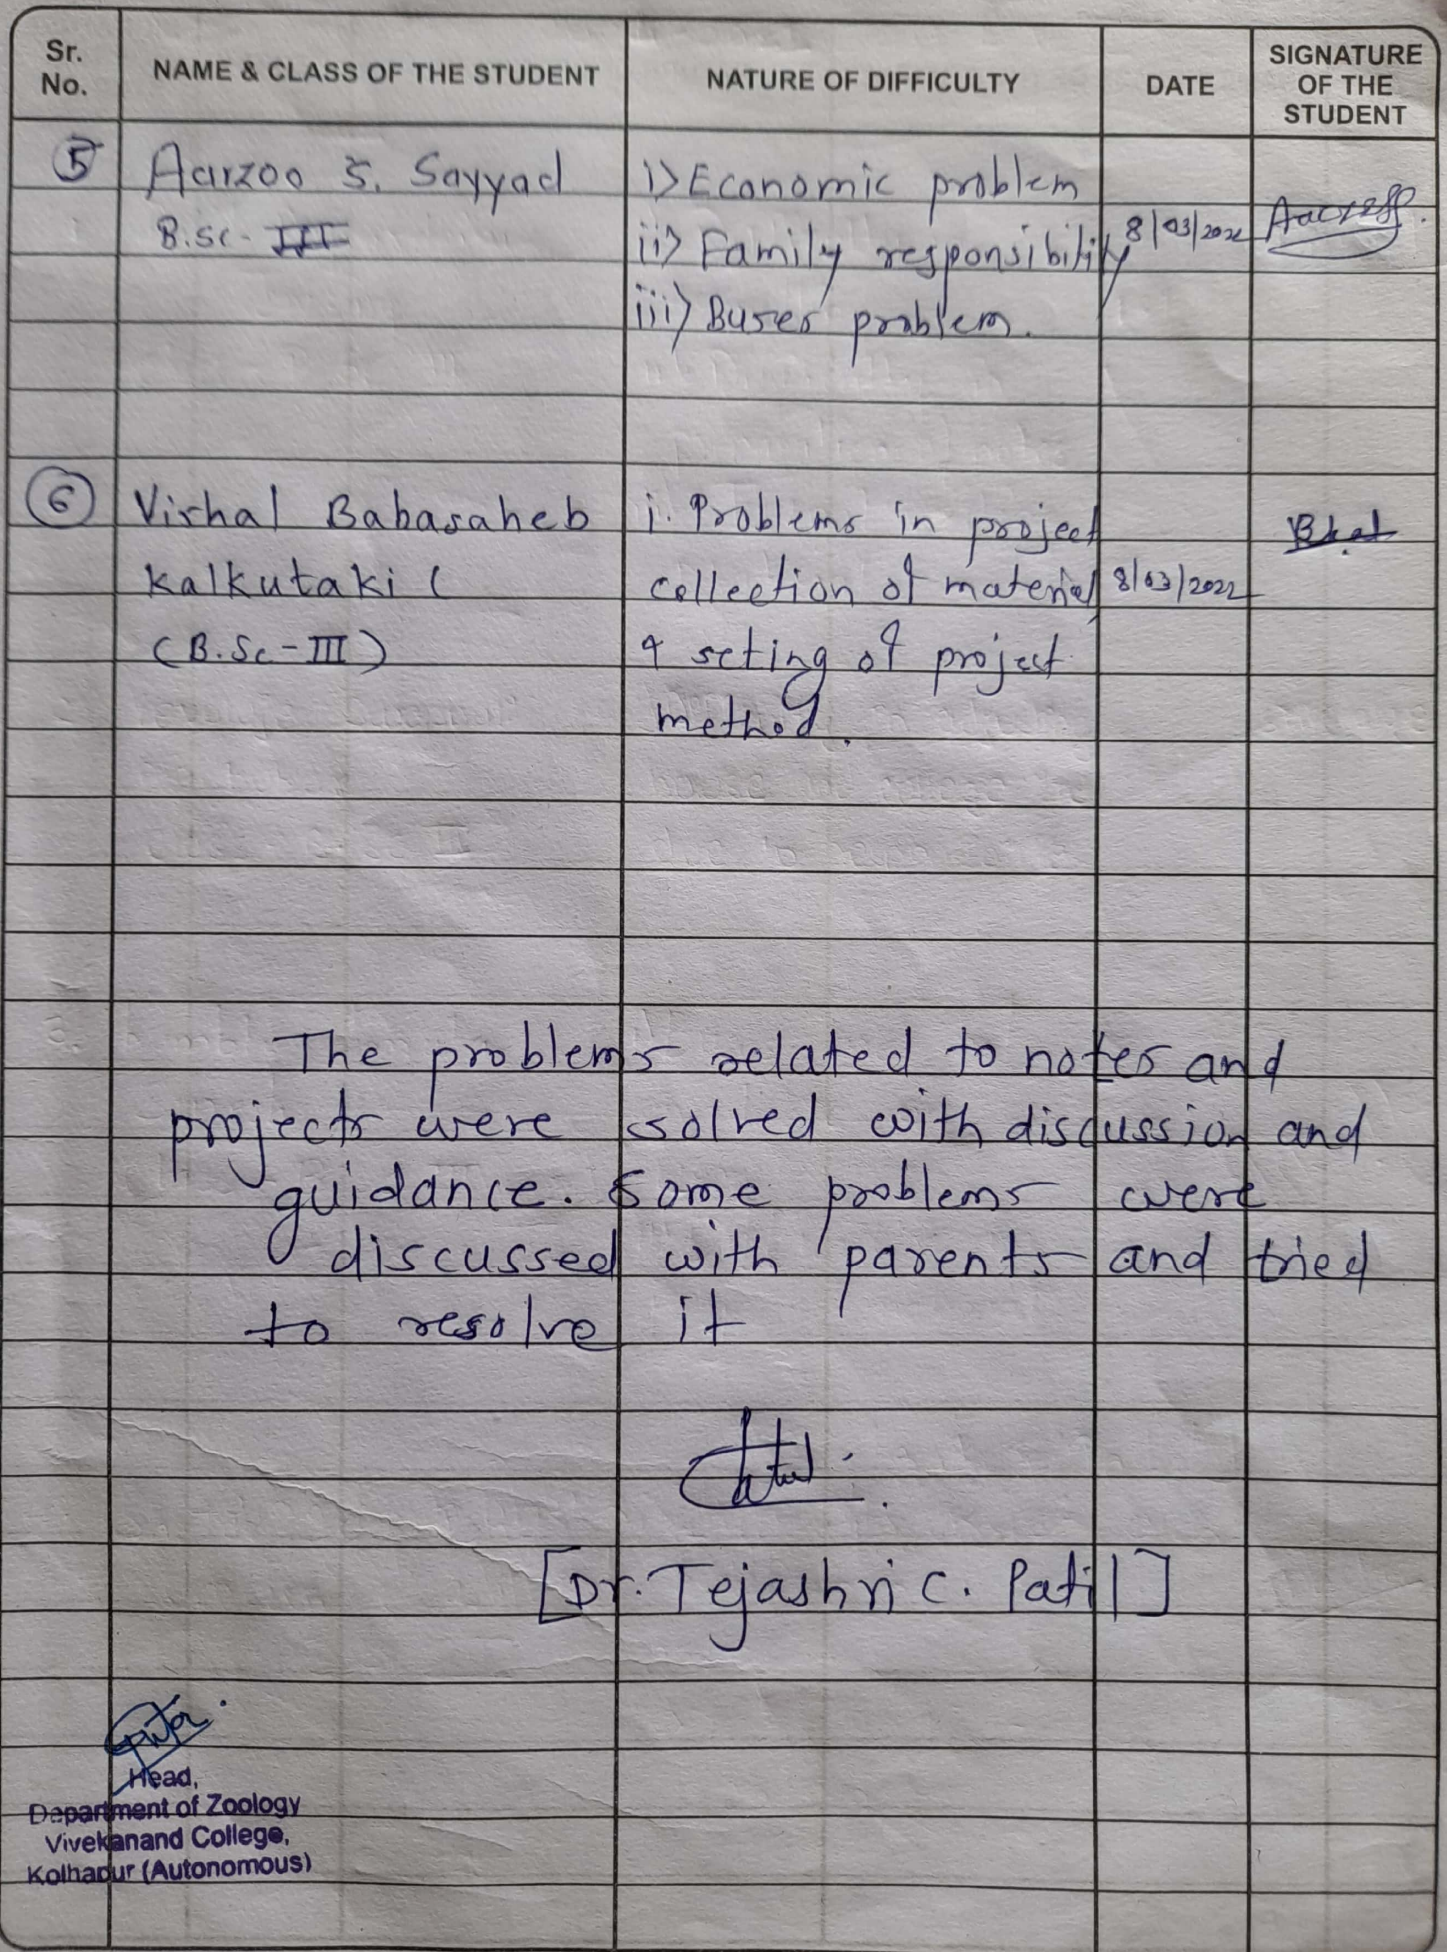 Sr. No.
NAME & CLASS OF THE STUDENT
NATURE OF DIFFICULTY
DATE
SIGNATURE OF THE STUDENT
5
Aarzoo S. Sayyad
B.Sc - III
i) Economic problem
ii) Family responsibility
iii) Buses problem.
8/03/2022
6
Vishal Babasaheb
Kalkutaki (
(B.Sc-III)
i. Problems in project
collection of material
& seting of project
method.
8/03/2022
The problems related to notes and
projects were solved with discussion and
guidance. Some problems were
discussed with parents and tried
to resolve it
[Dr. Tejashri C. Patil]
Head,
Department of Zoology
Vivekanand College,
Kolhapur (Autonomous)